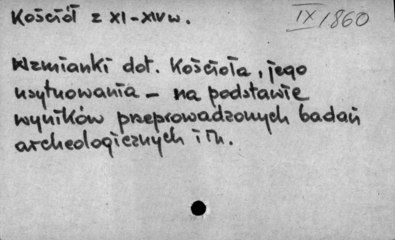 Kościół z XI-XIV w.
IX/1860
Wzmianki dot. Kościoła, jego
usytuowania - na podstawie
wyników przeprowadzonych badań
archeologicznych i in.